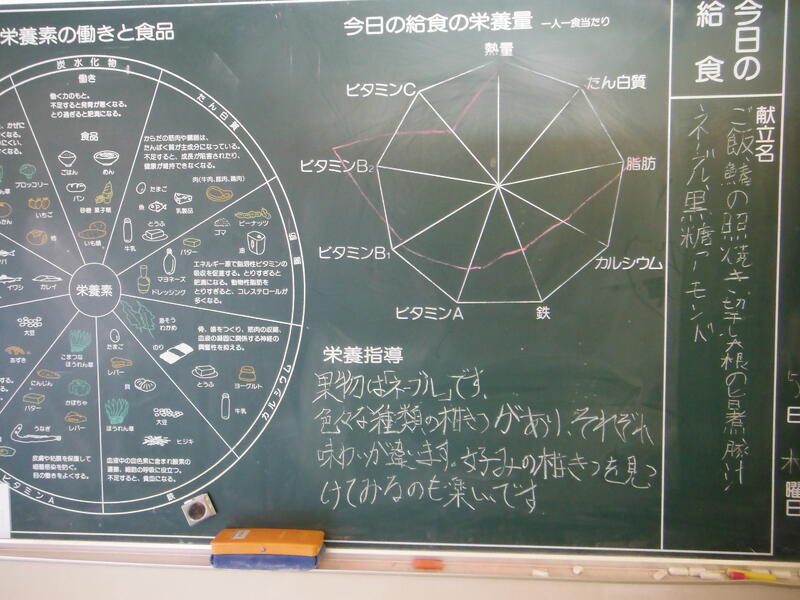 栄養素の働きと食品
炭水化物
働き
働く力のもと。
不足すると発育が悪くなる。
とり過ぎると肥満になる。
食品
ごはん
めん
パン
砂糖
菓子類
いも類
たん白質
からだの筋肉や臓器は、
たんぱく質が主成分になっている。
不足すると、成長が阻害されたり、
健康が維持できなくなる。
肉(牛肉、豚肉、鶏肉)
たまご
魚
乳製品
とうふ
牛乳
脂肪
ゴマ
ピーナッツ
バター
油
マヨネーズ
ドレッシング
エネルギー源で脂溶性ビタミンの
吸収を促進する。とりすぎると
肥満になる。動物性脂肪を
とりすぎると、コレステロールが
多くなる。
カルシウム
骨、歯をつくり、筋肉の収縮、
血液の凝固に関係する神経の
興奮性を抑える。
わかめ
のり
とうふ
ヨーグルト
牛乳
鉄
たまご
レバー
貝
大豆
ほうれん草
ヒジキ
血液中の血色素に含まれ酸素の
運搬、細胞の呼吸に役立つ。
不足すると、貧血になる。
ビタミンA
こまつな
ほうれん草
にんじん
かぼちゃ
バター
レバー
うなぎ
皮膚や粘膜を保護して
細菌感染を防ぐ。
目の働きをよくする。
大豆
あずき
イワシ
カレイ
ブロッコリー
いちご
柿
栄養素
今日の給食の栄養量 一人一食当たり
熱量
たん白質
脂肪
カルシウム
鉄
ビタミンA
ビタミンB1
ビタミンB2
ビタミンC
栄養指導
果物は「ネーブル」です。
色々な種類の柑きつがあり、それぞれ
味わいが違います。好みの柑きつを見つ
けてみるのも楽しいです
今日の
給食
献立名
ご飯、鰆の照焼き、切干大根の旨煮、豚汁
ネーブル、黒糖アーモンド
日
木
曜日